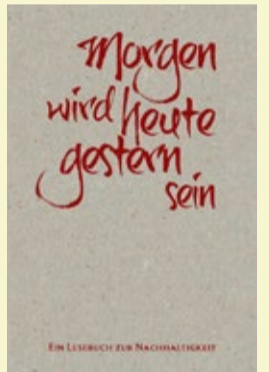 Morgen
wird heute
gestern
sein
EIN LESEBUCH ZUR NACHHALTIGKEIT